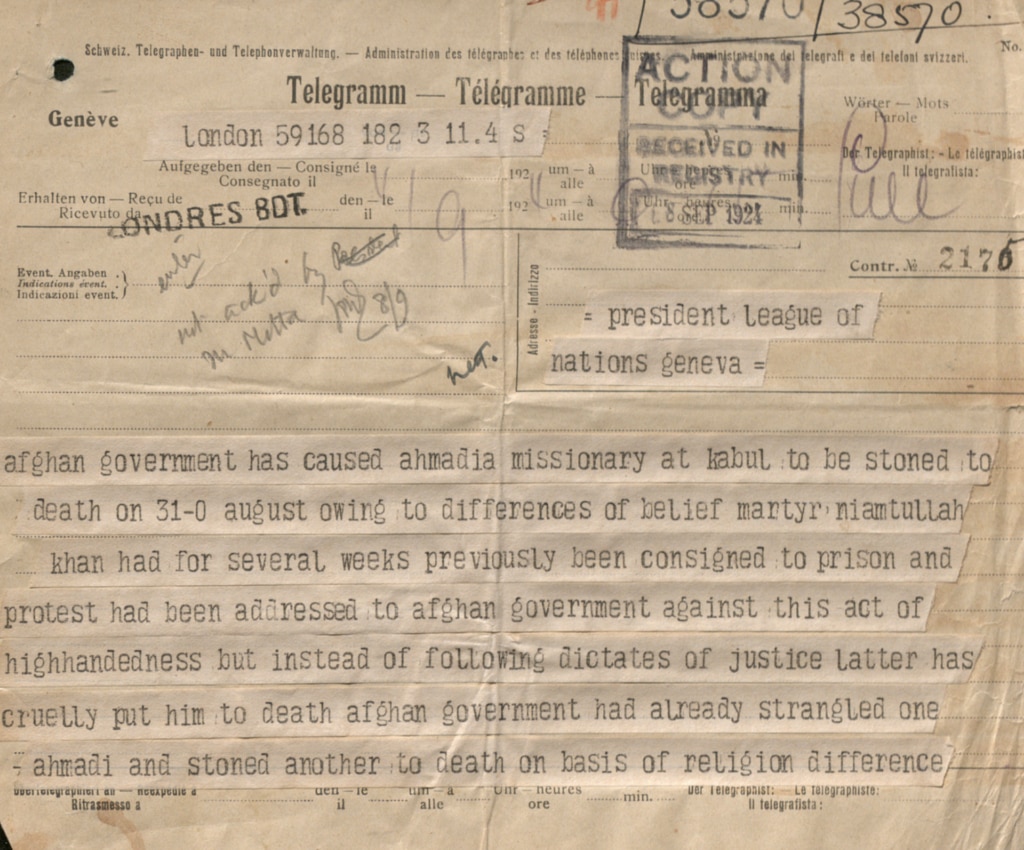 38570 / 38570.
Schweiz. Telegraphen- und Telephonverwaltung. — Administration des télégraphes et des téléphones suisses. — Amministrazione dei telegrafi e dei telefoni svizzeri.
No.
Telegramm — Télégramme — Telegramma
ACTION COPY
RECEIVED IN REGISTRY
8 SEP 1924
Genève
Wörter — Mots
Parole
london 59168 182 3 11.4 S =
Der Telegraphist: - Le télégraphist
Il telegrafista:
Aufgegeben den — Consigné le
Consegnato il
192
um — à
alle
Uhr — heures
ore
min.
Erhalten von — Reçu de
Ricevuto da
LONDRES BDT.
den — le
il
9
192
um — à
alle
Uhr — heures
ore
min.
Event. Angaben
Indications évent.
Indicazioni event.
not ack'd by
Mr Motta 8/9
Adresse - Indirizzo
Contr. № 2176
= president league of
nations geneva =
afghan government has caused ahmadia missionary at kabul to be stoned to
death on 31-0 august owing to differences of belief martyr niamtullah
khan had for several weeks previously been consigned to prison and
protest had been addressed to afghan government against this act of
highhandedness but instead of following dictates of justice latter has
cruelly put him to death afghan government had already strangled one
- ahmadi and stoned another to death on basis of religion difference
Uebertelegraphiert an — Réexpédié à
Ritrasmesso a
den — le
il
um — à
alle
Uhr — heures
ore
min.
Der Telegraphist: — Le télégraphiste:
Il telegrafista: